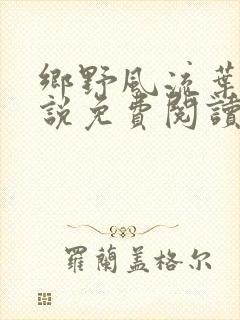 鄉野風流葉
說免費閱讀
羅蘭蓋格尔